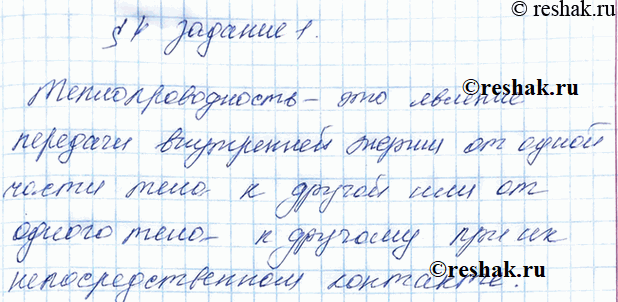 ©reshak.ru
§ 4 Задание 1.
©reshak.ru
Теплопроводность – это явление
передачи внутренней энергии от одной
части тела к другой или от
одного тела к другому при их
непосредственном контакте.
©reshak.ru